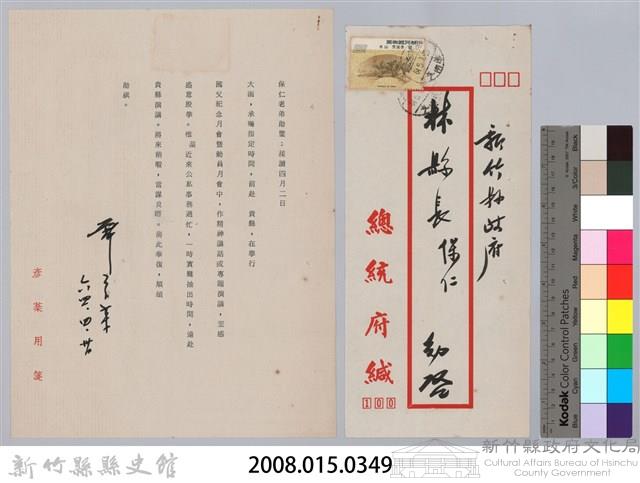 保仁老弟勛鑒：接讀四月二日
大函，承囑指定時間，前赴 貴縣，在舉行
國父紀念月會暨動員月會中，作精神講話或專題演講，至感
盛意殷摯。惟 近來公私事務過忙，一時實難抽出時間，遠赴
貴縣演講。將來稍暇，當謀良晤。耑此奉復，順頌
勛祺。
六四、四、廿
彥棻用箋
新竹縣政府
林縣長保仁 勛啓
總統府緘
100
新竹縣縣史館
2008.015.0349
新竹縣政府文化局
Cultural Affairs Bureau of Hsinchu
County Government
Kodak Color Control Patches
Blue
Cyan
Green
Yellow
Red
Magenta
White
3/Color
Black